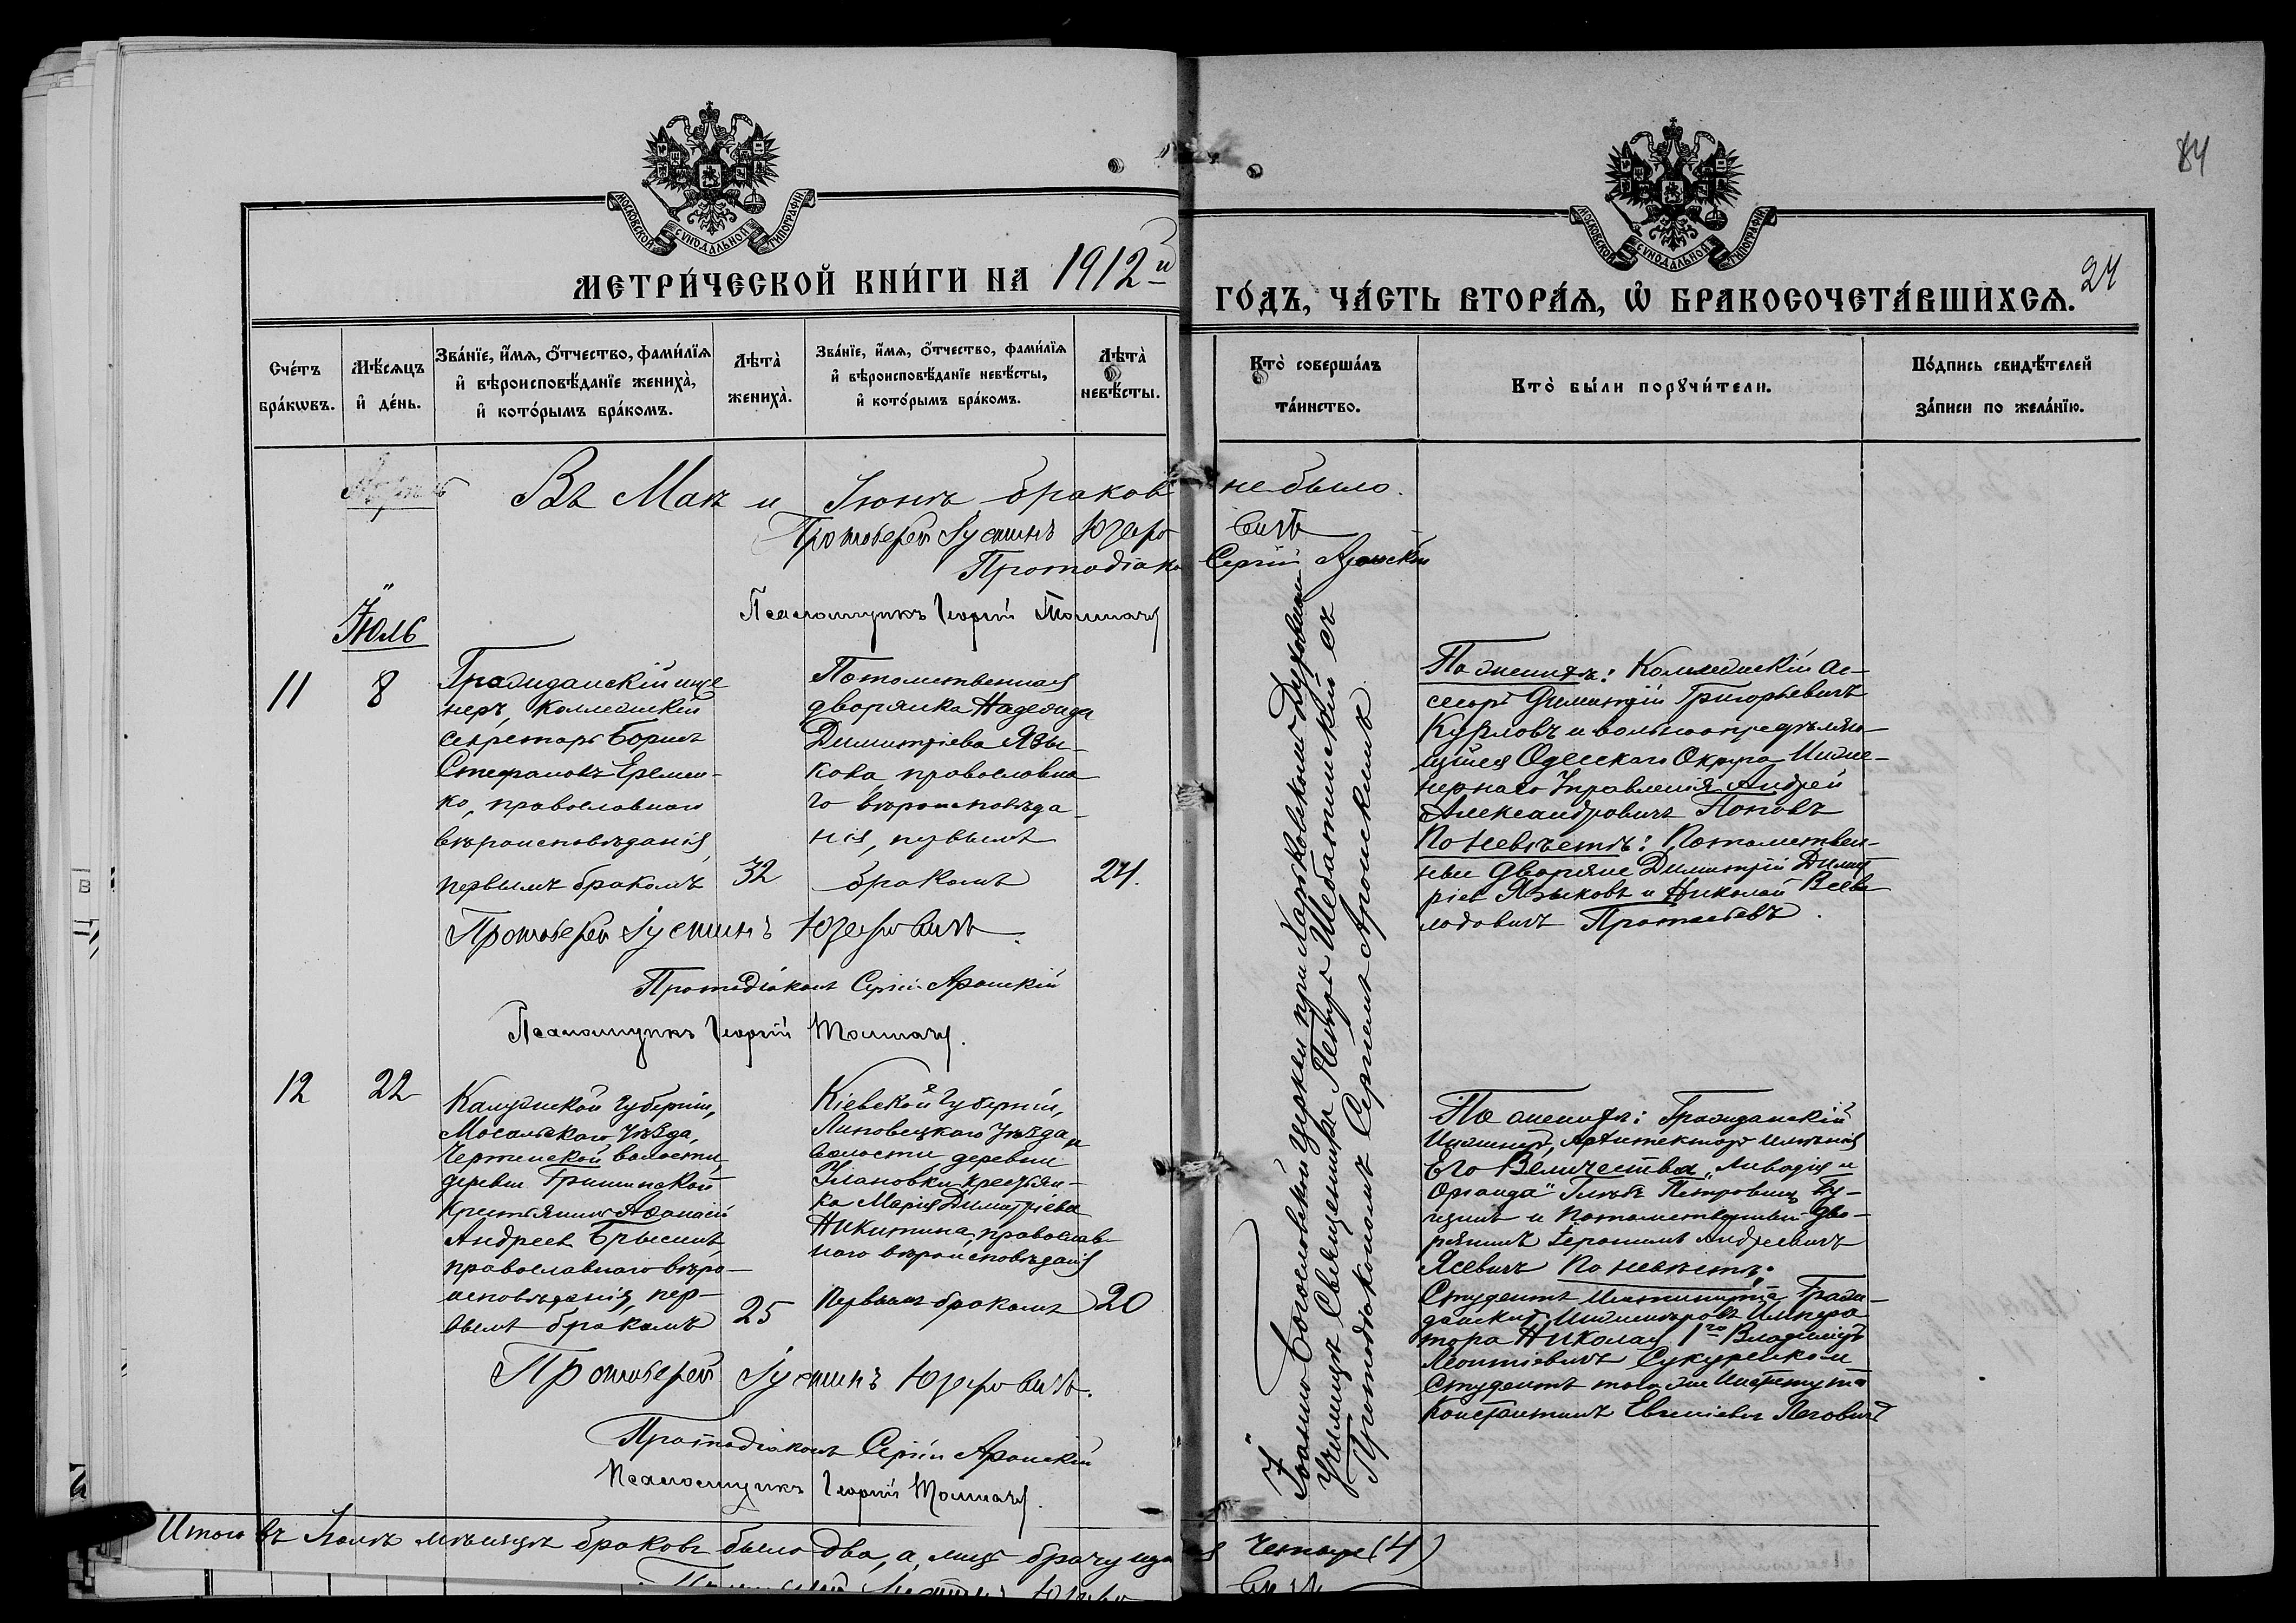 84
МОСКОВСКОЙ СѴНОДАЛЬНОЙ ТИПОГРАФІИ
МОСКОВСКОЙ СѴНОДАЛЬНОЙ ТИПОГРАФІИ
МЕТРИ́ЧЕСКОЙ КНИ́ГИ НА 1912й
ГО́ДЪ, ЧА́СТЬ ВТОРА́Ѧ, Ѽ БРАКОСОЧЕТА́ВШИХСѦ. 24
Сче́тъ
бра́кѡвъ.
Мѣ́сѧцъ
и҆ де́нь.
Зва́нїе, и҆́мѧ, ѻ҆́тчество, фами́лїѧ
и҆ вѣроисповѣ́данїе жениха̀,
и҆ кото́рымъ бра́комъ.
Лѣта̀
жениха̀.
Зва́нїе, и҆́мѧ, ѻ҆́тчество, фами́лїѧ
и҆ вѣроисповѣ́данїе невѣ́сты,
и҆ кото́рымъ бра́комъ.
Лѣта̀
невѣ́сты.
Кто̀ соверша́лъ
та́инство.
Кто̀ бы́ли порꙋчи́тели.
По́дпись свидѣ́телей
за́писи по жела́нїю.
Въ Маѣ и Іюнѣ браковъ не было.
Протоіерей Іустинъ Юзефовичъ
Протодіако Сергій Аронскій
Псаломщикъ Георгій Толмачъ
Іюль
11
8
Гражданскій инже
неръ, коллежскій
секретарь Борисъ
Стефановъ Еремен-
ко, православнаго
вѣроисповѣданія,
первымъ бракомъ
32
Потомственная
дворянка Надежда
Димитріева Язы-
кова православна
го вѣроисповѣда-
нія, первымъ
бракомъ
24.
Протоіерей Іустинъ Юзефовичъ.
Протодіаконъ Сергій Аронскій
Псаломщикъ Георгій Толмачъ.
Іоанно-Богословской церкви при Харьковскомъ Духовномъ
Училищѣ Священникъ Петръ Шебатинскій съ
Протодіакономъ Сергіемъ Аронскимъ
По женихѣ: Коллежскій ас-
сесоръ Димитрій Григорьевичъ
Курловъ и вольноопредѣляю-
щійся Одесскаго Округа Инже-
нернаго Управленія Андрей
Александровичъ Поповъ
По невѣстѣ: Потомствен-
ные дворяне Димитрій Димит
ріев Языковъ и Николай Всево
лодовичъ Протасьевъ.
12
22
Калужской губерніи,
Мосальскаго Уѣзда,
Чертенской волости,
деревни Гришинской
крестьянинъ Аѳанасій
Андреев Брысинъ,
православнаго вѣро-
исповѣданія, пер-
вымъ бракомъ
25
Кіевской губерніи,
Липовецкаго Уѣзда,
волости деревни
Улановки крестьян-
ка Марія Димитріева
Никитина, православ-
наго вѣроисповѣданія
первымъ бракомъ
20
По женихѣ: Гражданскій
Инженеръ, Архитекторъ имѣнія
Его Величества „Ливадія и
Оріанда" Глѣбъ Петровичъ Гу-
щинъ и потомственный дво-
рянинъ Іеронимъ Андреевичъ
Ясевичъ По невѣстѣ:
Студентъ Института Граж-
данскихъ Инженеровъ Импера
тора Николая 1го Владиміръ
Леонтіевичъ Сукуренко и
Студентъ того же Института
Константинъ Евгеніевич
Протоіерей Іустинъ Юзефовичъ.
Протодіаконъ Сергій Аронскій
Псаломщикъ Георгій Толмачъ.
Итого въ Іюлѣ мѣсяцѣ браковъ было два, а лицъ брачущихся четыре (4)